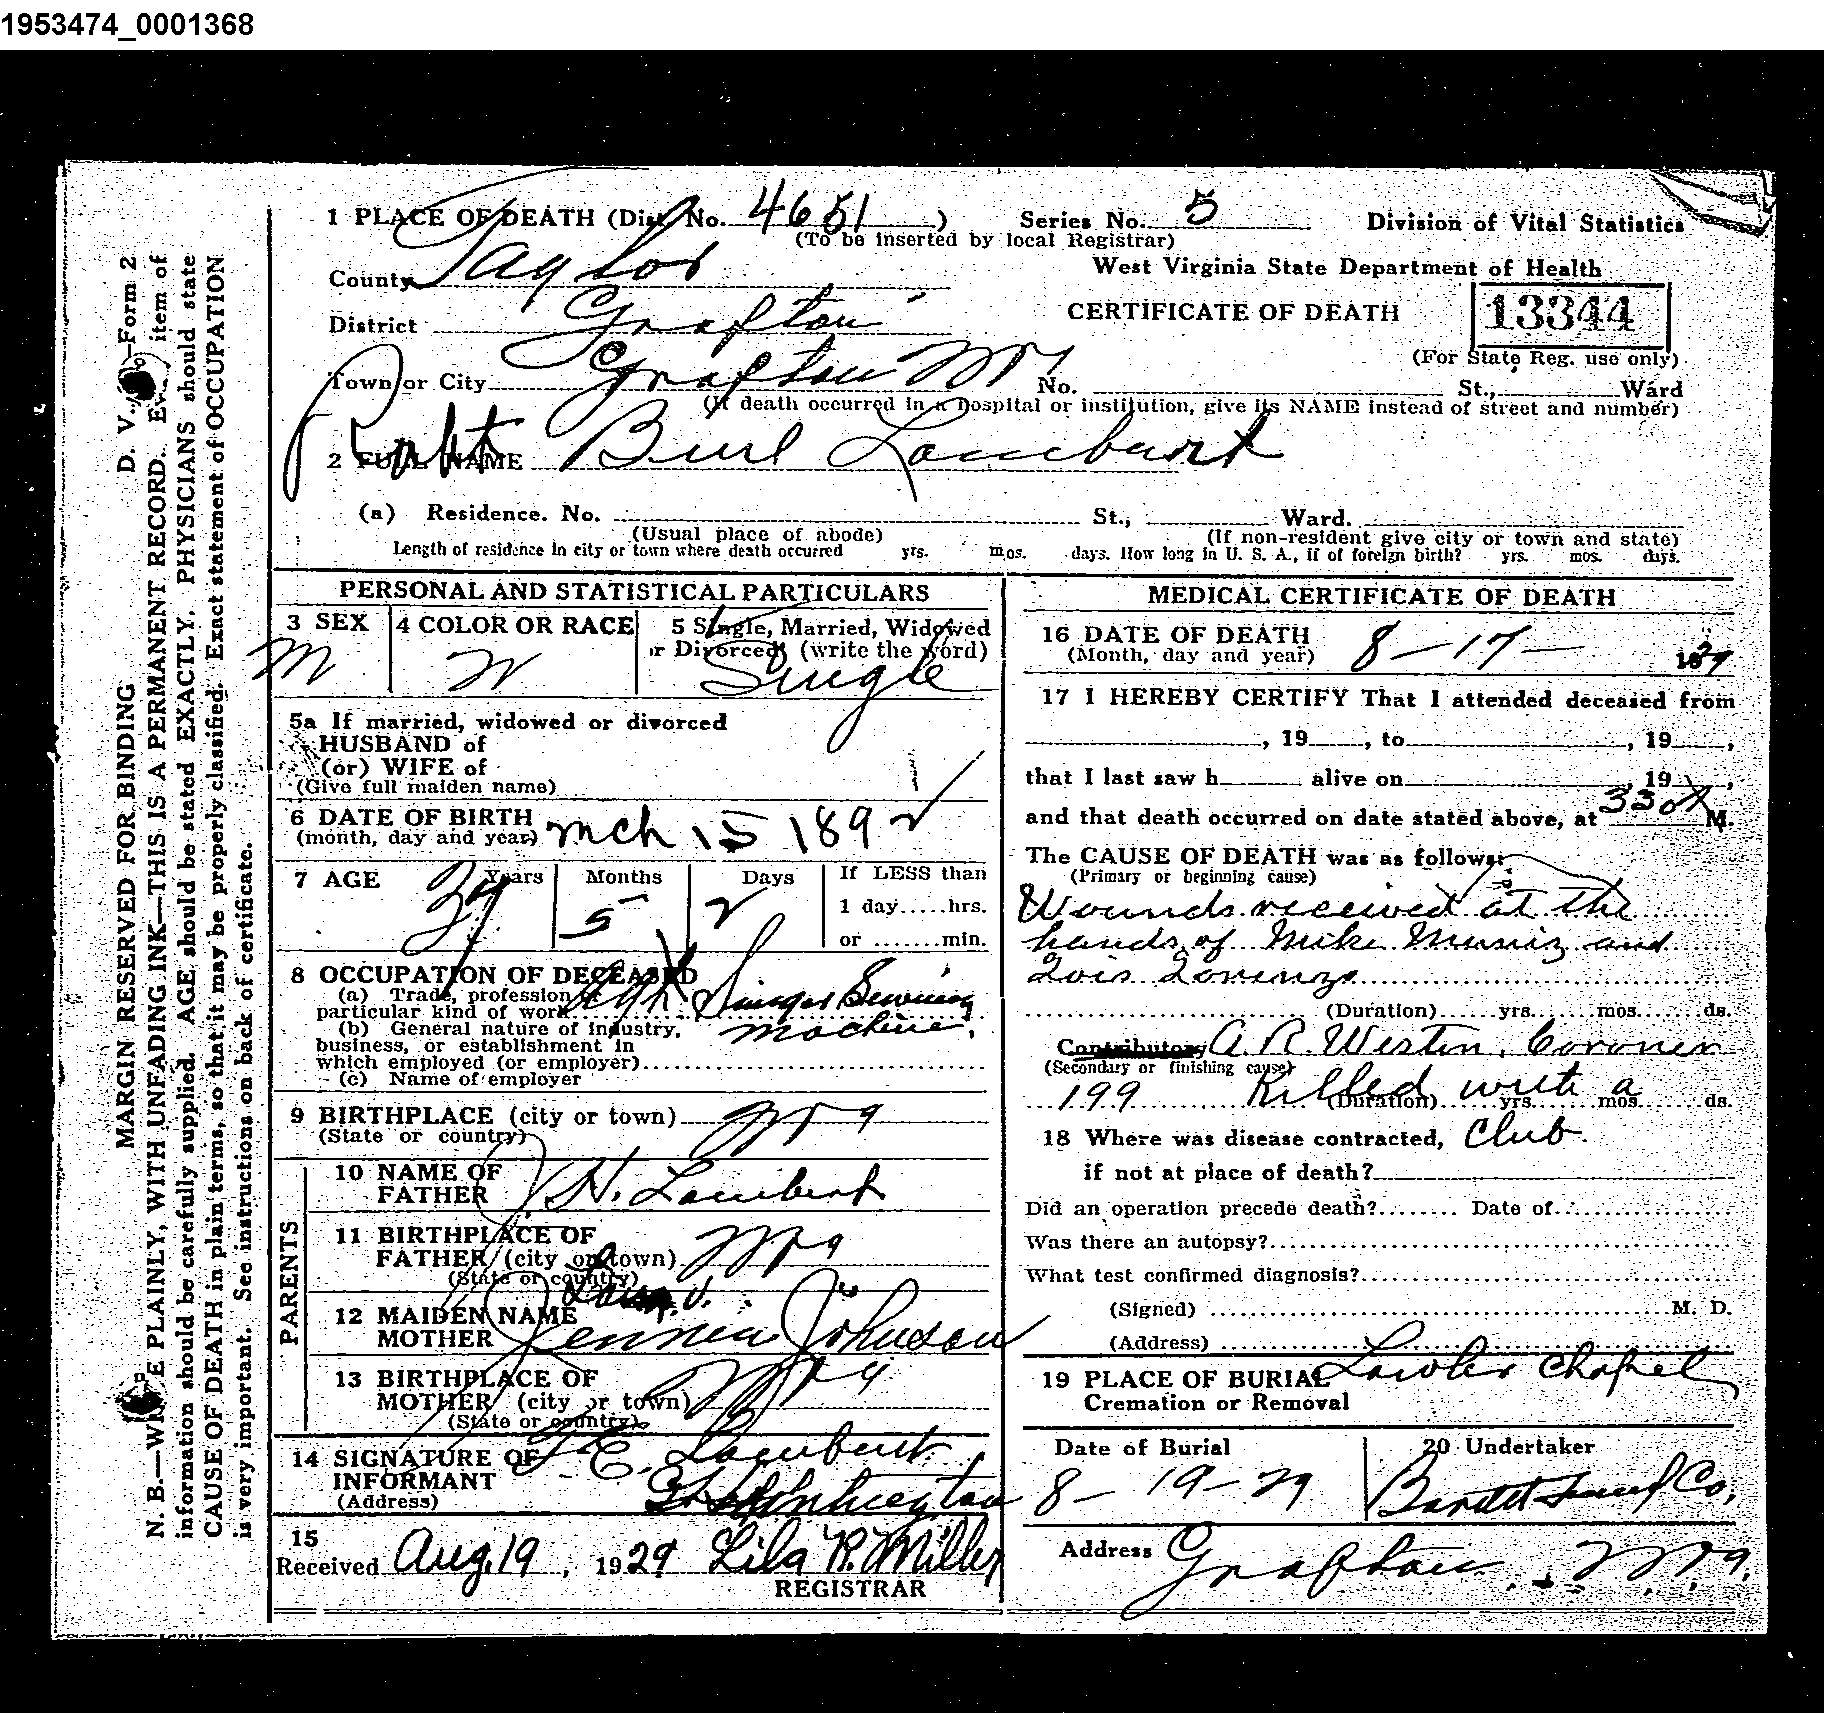 1953474_0001368
1 PLACE OF DEATH (Dist. No. 4651 ) Series No. 5 Division of Vital Statistics
(To be inserted by local Registrar)
County Taylor West Virginia State Department of Health
District Grafton CERTIFICATE OF DEATH 13344
(For State Reg. use only)
Town or City Grafton No. St., Ward
(If death occurred in a hospital or institution, give its NAME instead of street and number)
2 FULL NAME Robt Burl Lambert
(a) Residence. No. St., Ward.
(Usual place of abode) (If non-resident give city or town and state)
Length of residence in city or town where death occurred yrs. mos. days. How long in U. S. A., if of foreign birth? yrs. mos. days.
PERSONAL AND STATISTICAL PARTICULARS
3 SEX M
4 COLOR OR RACE W
5 Single, Married, Widowed
or Divorced (write the word)
Single
5a If married, widowed or divorced
HUSBAND of
(or) WIFE of
(Give full maiden name)
6 DATE OF BIRTH
(month, day and year) Mch 15 1892
7 AGE 37 Years 5 Months 2 Days If LESS than
1 day.....hrs.
or .......min.
8 OCCUPATION OF DECEASED
(a) Trade, profession or
particular kind of work Agt Singer Sewing
(b) General nature of industry, Machine.
business, or establishment in
which employed (or employer)
(c) Name of employer
9 BIRTHPLACE (city or town)
(State or country)
PARENTS
10 NAME OF
FATHER J. H. Lambert
11 BIRTHPLACE OF
FATHER (city or town)
(State or country)
12 MAIDEN NAME
MOTHER Jennie Johnson
13 BIRTHPLACE OF
MOTHER (city or town)
(State or country)
14 SIGNATURE OF E. Lambert
INFORMANT
(Address)
15
Received Aug. 19, 1929 Lila R. Miller
REGISTRAR
MEDICAL CERTIFICATE OF DEATH
16 DATE OF DEATH
(Month, day and year) 8 - 17 - 1929
17 I HEREBY CERTIFY That I attended deceased from
, 19 , to , 19 ,
that I last saw h alive on , 19 ,
and that death occurred on date stated above, at 330 A M.
The CAUSE OF DEATH was as follows:
(Primary or beginning cause)
Wounds received at the
hands of Mike Muniz and
Lois Lorenzo
(Duration) yrs. mos. ds.
Contributory A. R. Westin, Coroner
(Secondary or finishing cause)
199 Killed with a
(Duration) yrs. mos. ds.
18 Where was disease contracted, Club.
if not at place of death?
Did an operation precede death? Date of
Was there an autopsy?
What test confirmed diagnosis?
(Signed) M. D.
(Address)
19 PLACE OF BURIAL Lawler Chapel
Cremation or Removal
Date of Burial 20 Undertaker
8 - 19 - 29
Address Grafton
MARGIN RESERVED FOR BINDING D. V. Form 2
N. B.—WRITE PLAINLY, WITH UNFADING INK—THIS IS A PERMANENT RECORD. Every item of
information should be carefully supplied. AGE should be stated EXACTLY. PHYSICIANS should state
CAUSE OF DEATH in plain terms, so that it may be properly classified. Exact statement of OCCUPATION
is very important. See instructions on back of certificate.